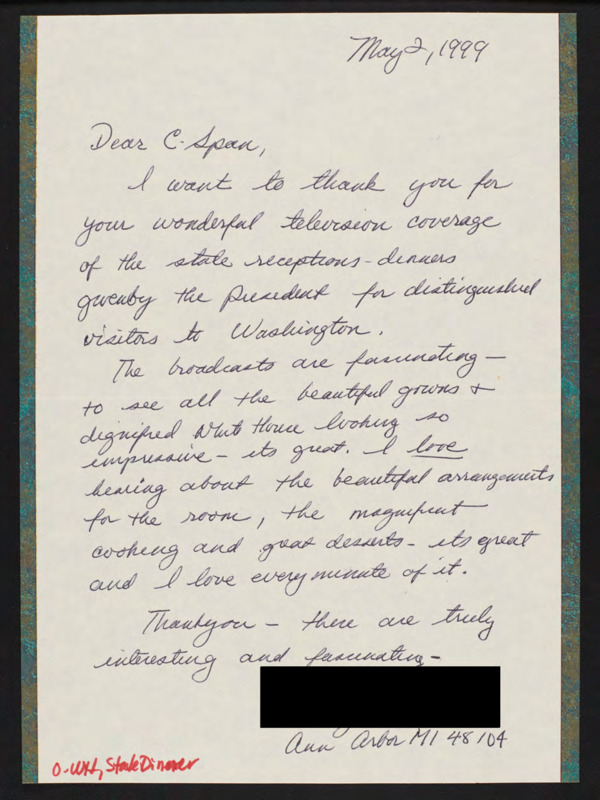 May 2, 1999
Dear C-Span,
I want to thank you for
your wonderful television coverage
of the state receptions-dinners
given by the President for distinguished
visitors to Washington.
The broadcasts are fascinating—
to see all the beautiful gowns &
dignified White House looking so
impressive - its great. I love
hearing about the beautiful arrangements
for the room, the magnificent
cooking and great desserts - its great
and I love every minute of it.
Thankyou - these are truly
interesting and fascinating-
Ann Arbor MI 48104
O-WH, State Dinner